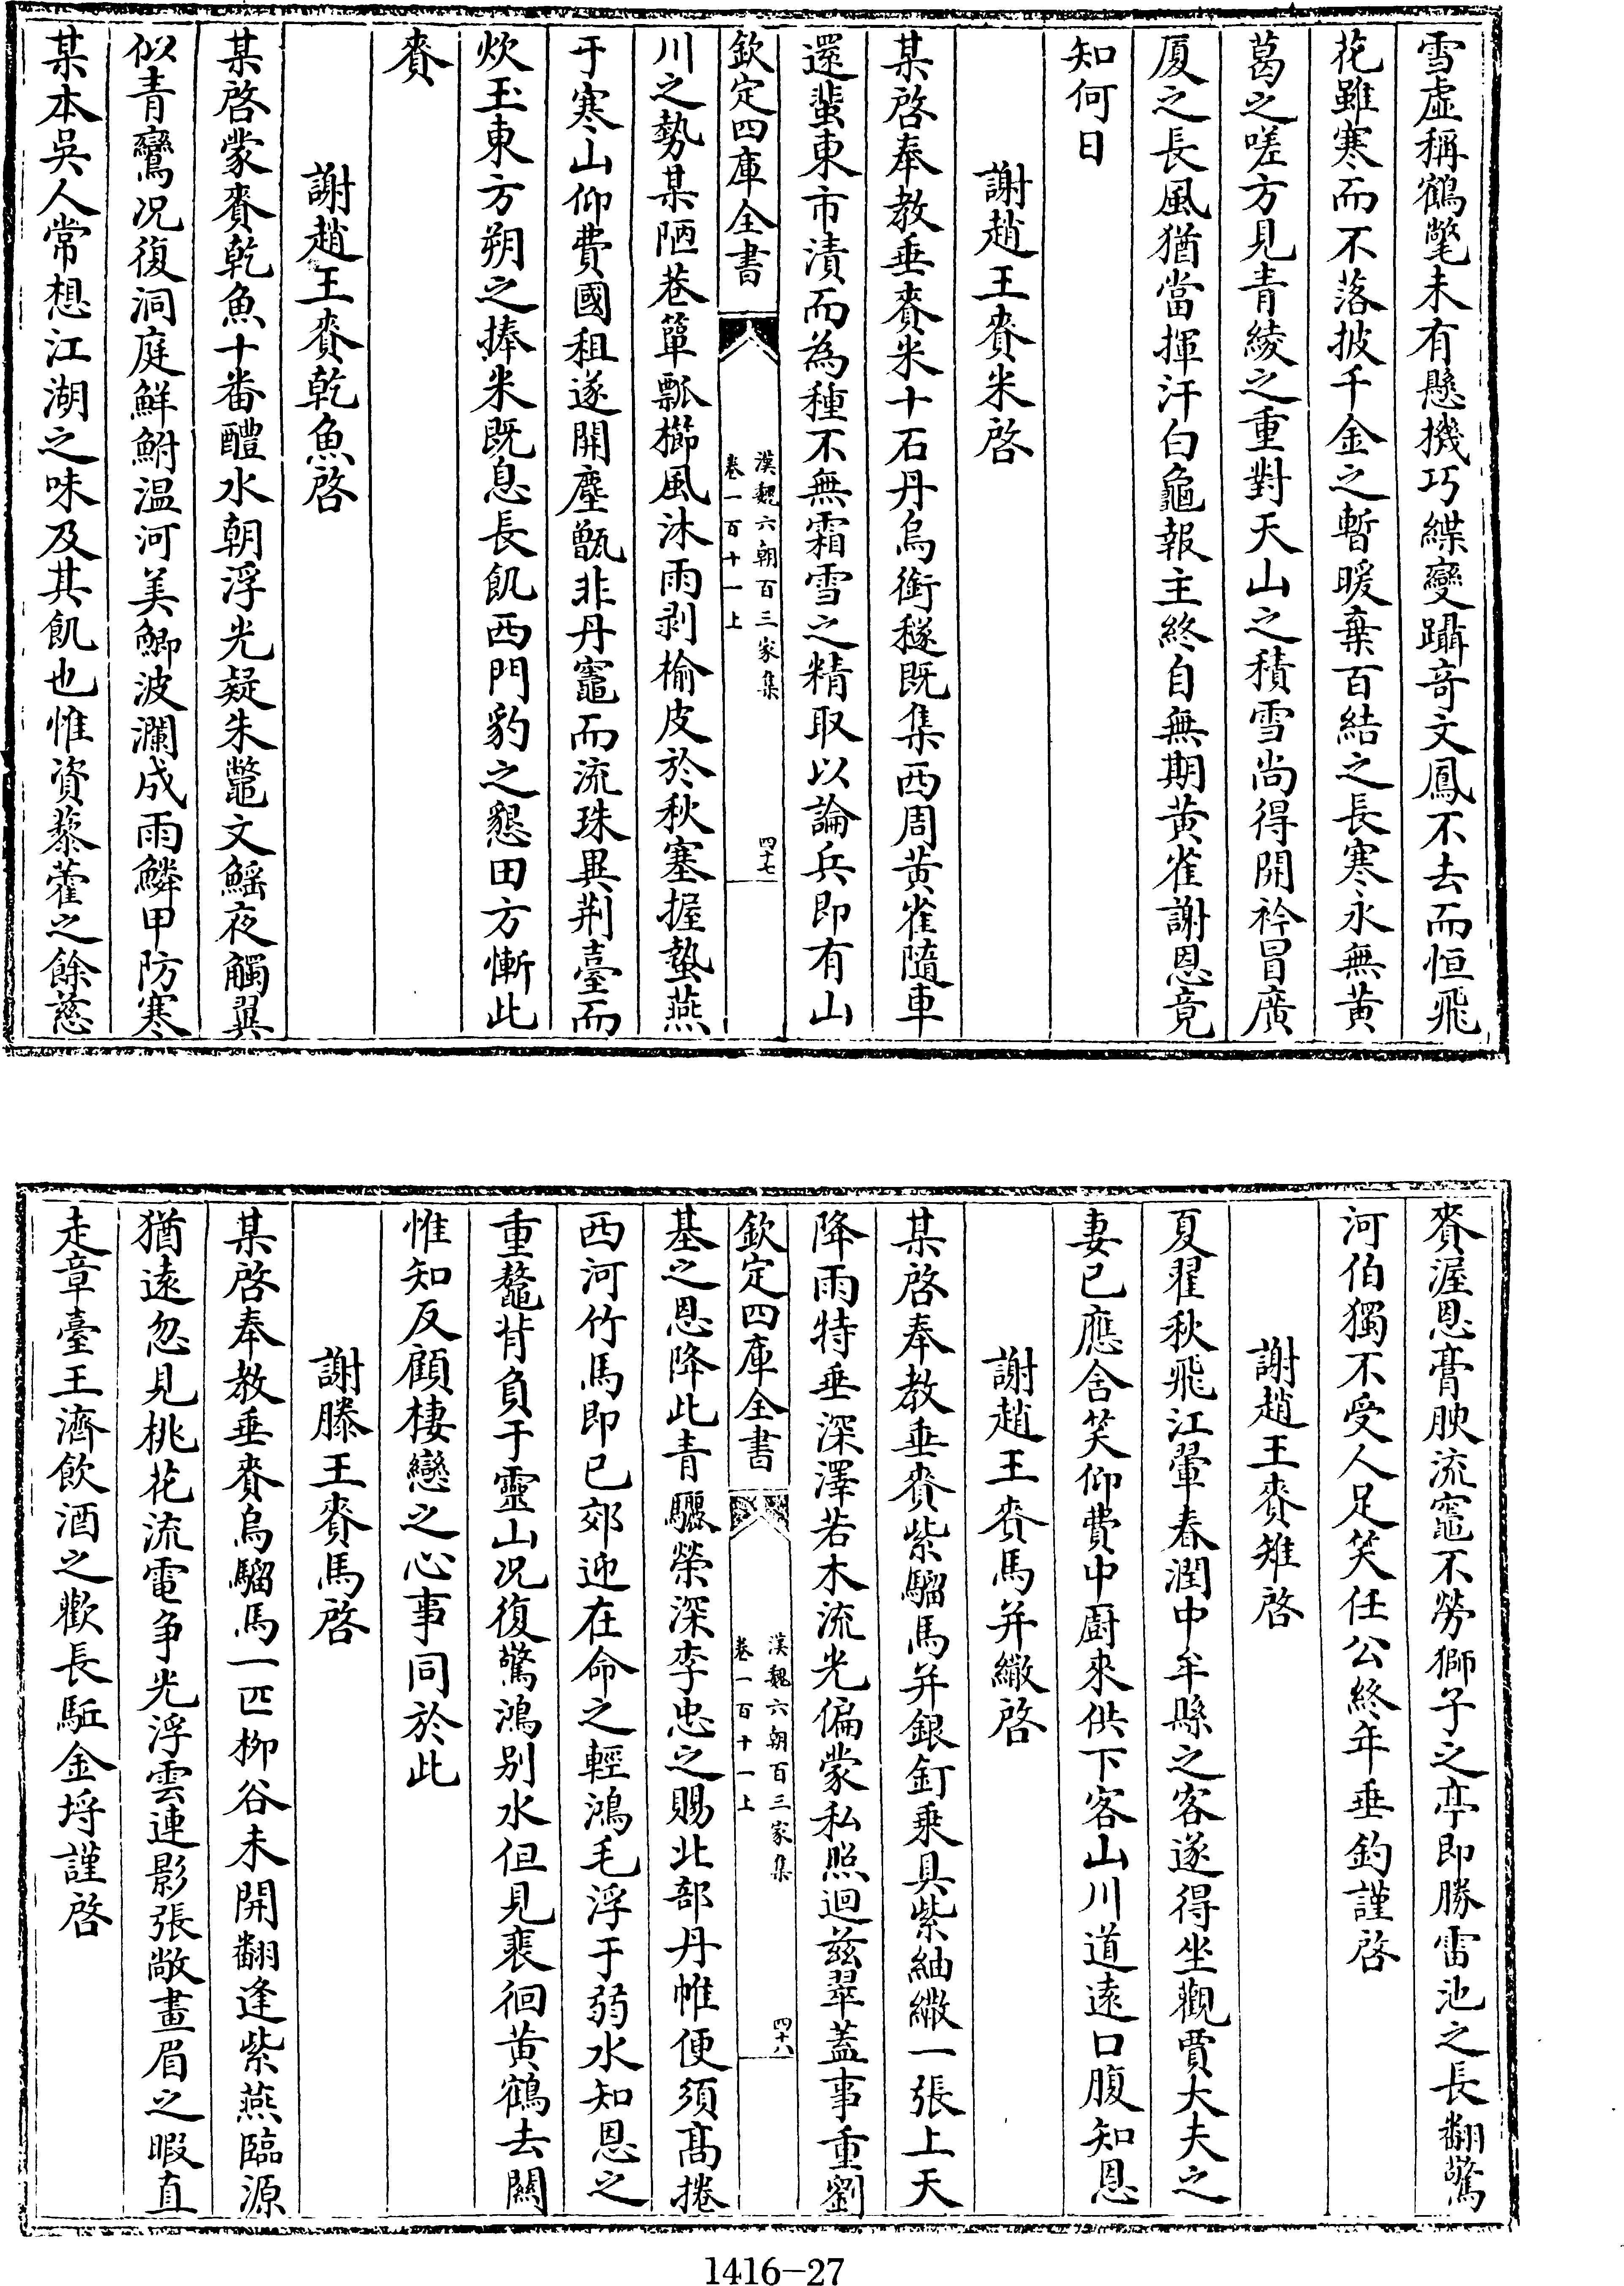 雪虛稱鶴氅未有懸機巧緤變躡奇文鳳不去而恒飛
花雖寒而不落披千金之暫暖棄百結之長寒永無黄
葛之嗟方見青綾之重對天山之積雪尚得開衿冒廣
厦之長風猶當揮汗白龜報主終自無期黄雀謝恩竟
知何日
謝趙王賚米啓
某啓奉教垂賚米十石丹烏銜穟既集西周黄雀隨車
還蜚東市漬而為種不無霜雪之精取以論兵即有山
欽定四庫全書
漢魏六朝百三家集
卷一百十一上
四十七
川之勢某陋巷簞瓢櫛風沐雨剥榆皮於秋塞掘蟄燕
于寒山仰費國租遂開塵甑非丹竈而流珠異荆臺而
炊玉東方朔之捧米既息長飢西門豹之懇田方慚此
賚
謝趙王賚乾魚啓
某啓蒙賚乾魚十番醴水朝浮光疑朱鼈文鰩夜觸翼
似青鸞况復洞庭鮮鮒温河美鯽波瀾成雨鱗甲防寒
某本吳人常想江湖之味及其飢也惟資藜藿之餘慈
賚渥恩膏腴流竈不勞獅子之亭即勝雷池之長翻驚
河伯獨不受人足笑任公終年垂釣謹啓
謝趙王賚雉啓
夏翟秋飛江翬春潤中牟縣之客遂得坐觀賈大夫之
妻已應含笑仰費中厨來供下客山川道遠口腹知恩
謝趙王賚馬并繖啓
某啓奉教垂賚紫騮馬并銀釘乗具紫紬繖一張上天
降雨特垂深澤若木流光偏蒙私照迴兹翠蓋事重劉
欽定四庫全書
漢魏六朝百三家集
卷一百十一上
四十八
基之恩降此青驪榮深李忠之賜北部丹帷便須髙捲
西河竹馬即已郊迎在命之輕鴻毛浮于弱水知恩之
重鼇背負于靈山况復驚鴻别水但見裴徊黄鶴去關
惟知反顧棲戀之心事同於此
謝滕王賚馬啓
某啓奉教垂賚烏騮馬一匹柳谷未開翻逢紫燕臨源
猶遠忽見桃花流電争光浮雲連影張敞畫眉之暇直
走章臺王濟飲酒之歡長駈金埒謹啓
1416-27